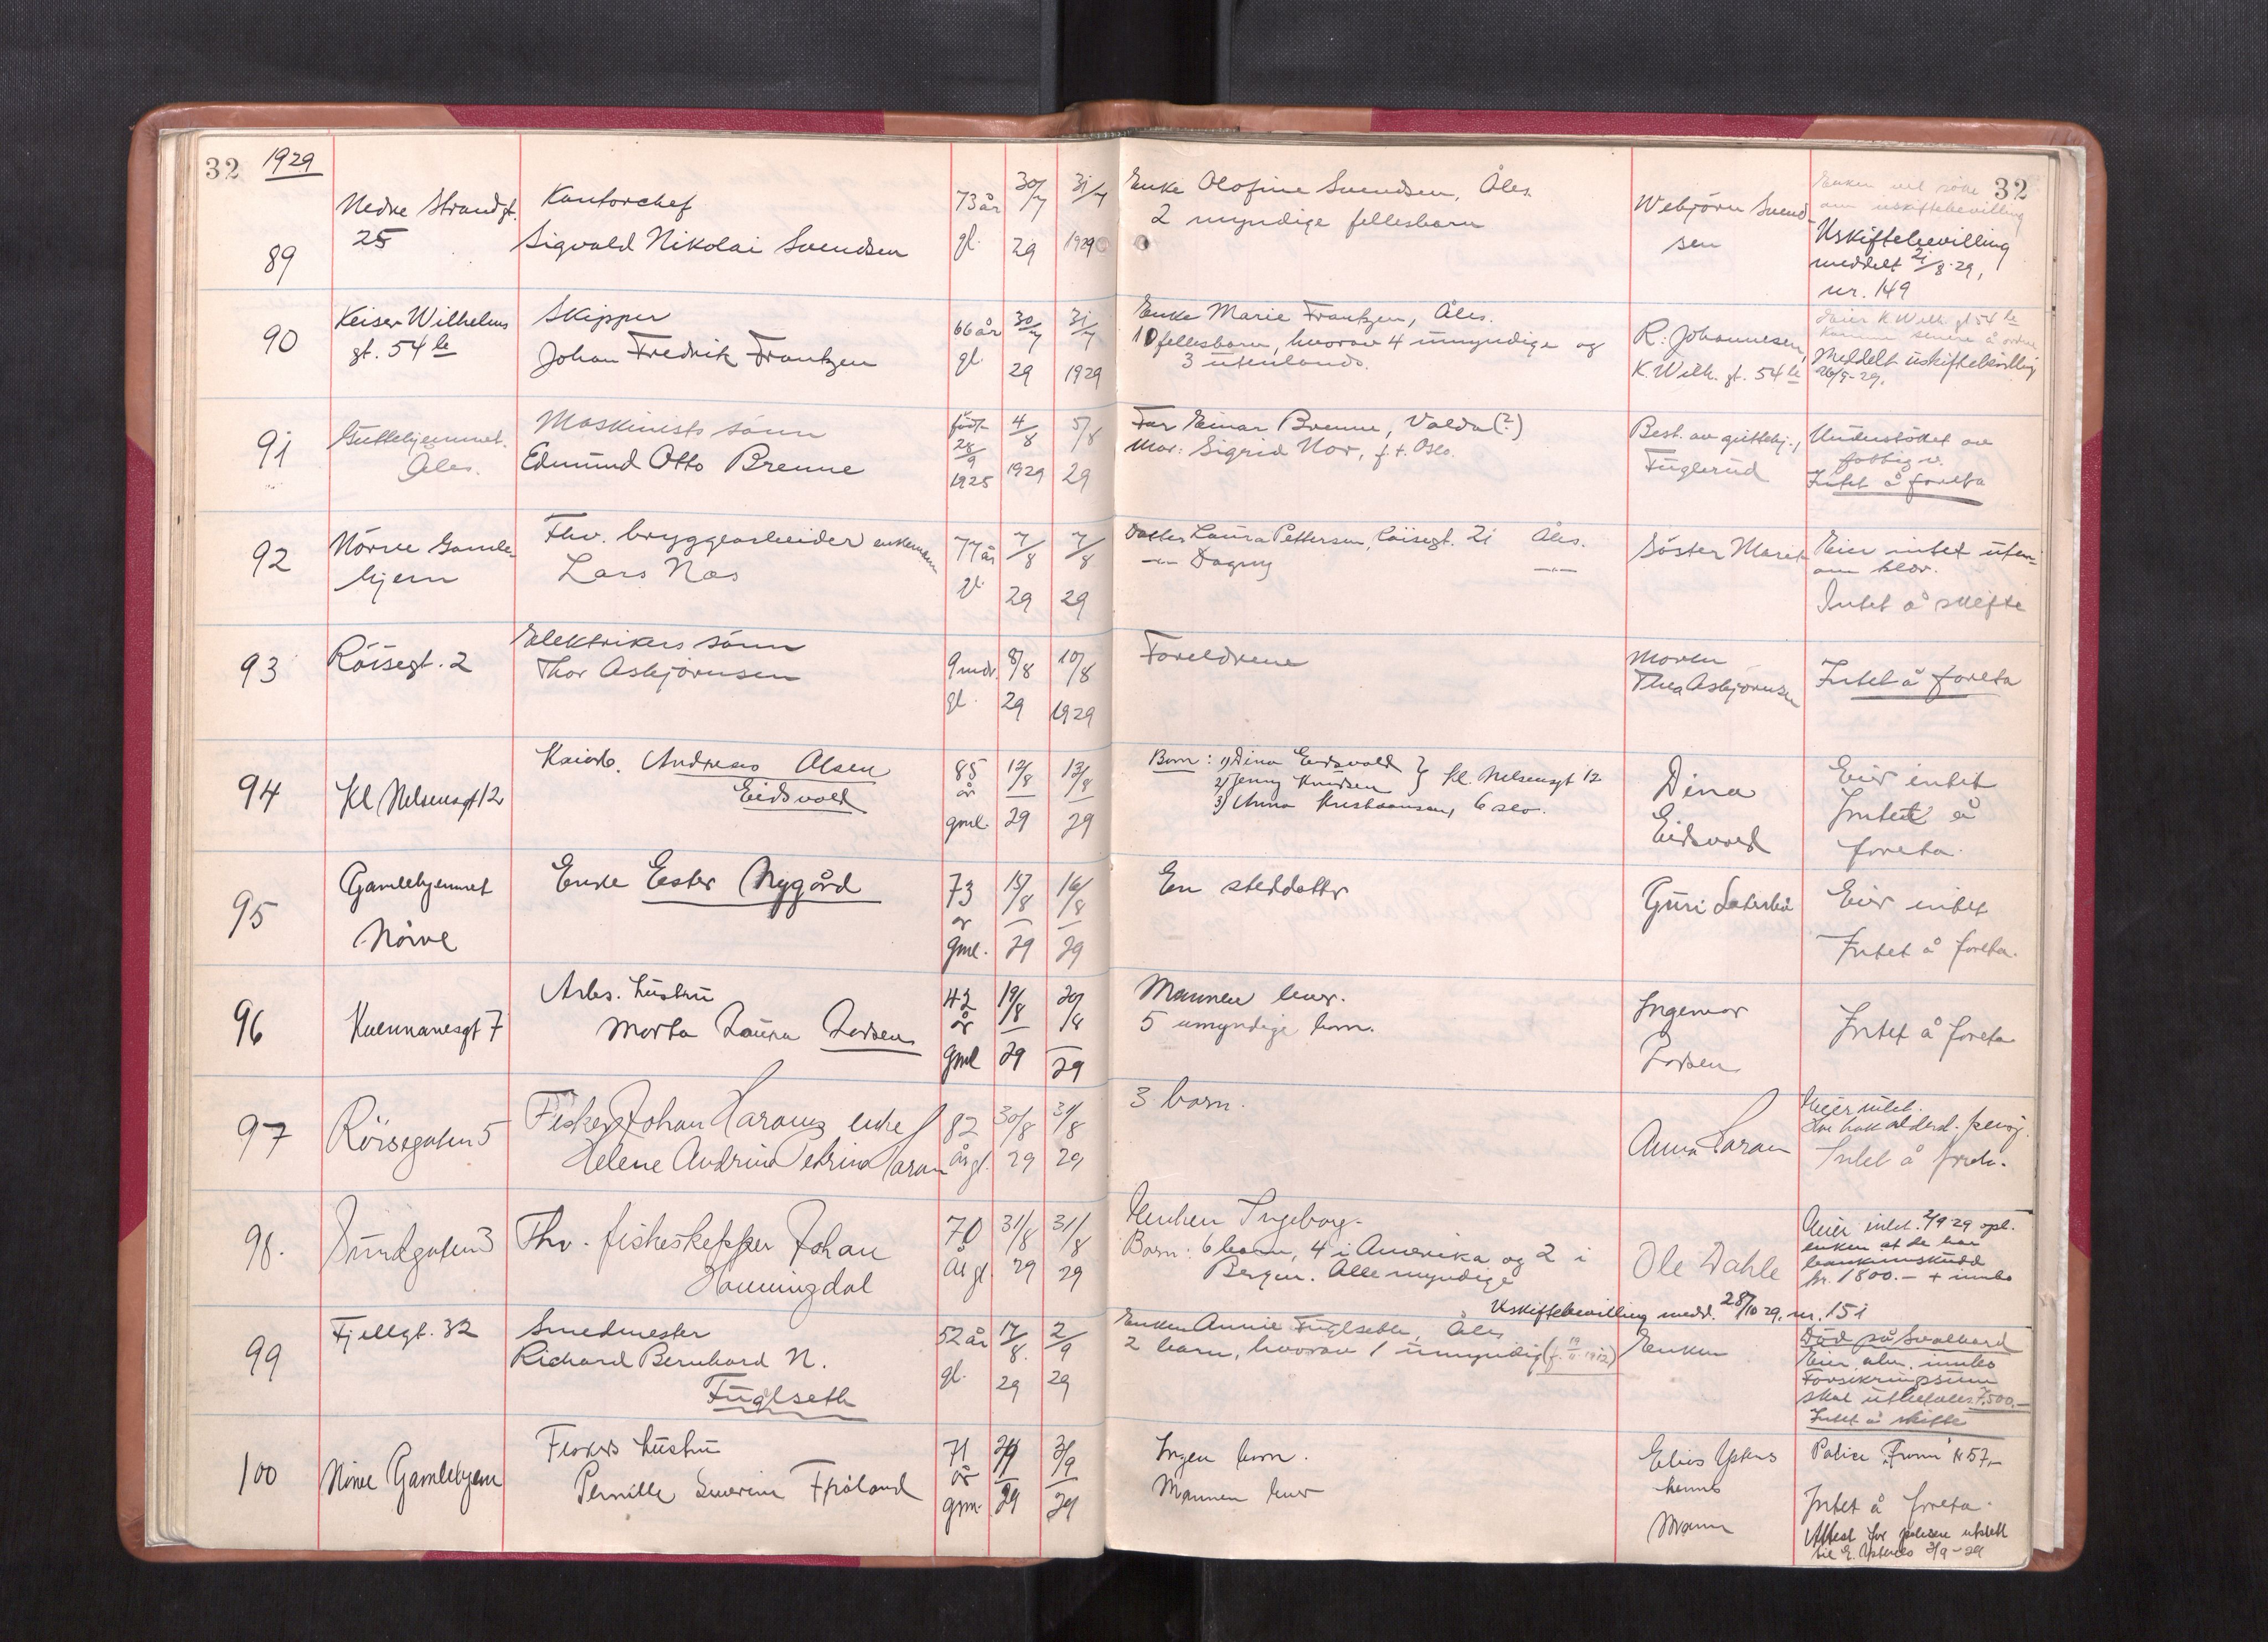 32 1929
32
Nedre Strandgt. 25
Kontorchef
Sigvald Nikolai Svendsen
73 år gl.
30/7 29
31/7 1929
Enke Olofine Svendsen, Åles.
2 myndige fellesbarn
Webjörn Svend-
sen
Enken vil söke
om uskiftebevilling
Uskiftebevilling
meddelt 21/8 29,
nr. 149
89
90
Keiser Wilhelms
gt. 54 b
Skipper
Johan Fredrik Frantzen
66 år gl.
30/7 29
31/7 1929
Enke Marie Frantzen, Åles.
10 fellesbarn, hvorav 4 umyndige og
3 utenlands.
R. Johannesen,
K. Wilh. gt. 54 b
Eier K. Wilh. gt 54 b
Meddelt uskiftebevilling
26/9-29.
91
Guttehjemmet.
Åles.
Maskinists sönn
Edmund Otto Brenne
födt 28/9 1925
4/8 1929
5/8 29
Far Einar Brenne, Valda (?)
Mor: Sigrid Nor, f. t. Oslo.
Best. av guttehj.,
Fuglerud
Understöttet av
fattigv.
Intet å foreta
92
Nörve Gamle-
hjem
Fhv. bryggearbeider enkemann
Lars Nas
77 år gl.
7/8 29
7/8 29
Datter Laura Pettersen, Röisegt. 21 Åles.
-"- Dagny -"-
Söster Marit
Eier intet uten-
om klær.
Intet å skifte
93
Röisegt. 2
Elektrikers sönn
Thor Asbjörnsen
9 mdr. gl.
8/8 29
10/8 1929
Foreldrene
Moren
Thea Asbjörnsen
Intet å foreta
94
Kl. Nelsensgt 12
Kaiarb. Andreas Olsen
Eidsvold
85 år gml.
12/8 29
13/8 29
Barn: 1) Dina Eidsvold
2) Jenny Knudsen } Kl. Nelsensgt 12
3) Anna Kristiansen, Oslo.
Dina
Eidsvold
Eier intet
Intet å
foreta.
95
Gamlehjemmet
Nörve
Enke Ester Nygård
73 år gml.
15/8 29
16/8 29
En steddatter
Guri
Eier intet
Intet å foreta.
96
Kvennanesgt 7
Arb. hustru
Marta Laura Larsen
42 år gml
19/8 29
20/8 29
Mannen lever.
5 umyndige barn.
Ingemar
Larsen
Intet å foreta
97
Röisegaten 5
Fisker Johan Harams enke
Helene Andrina Petrina Haram
82 år gl.
30/8 29
31/8 29
3 barn.
Anna Haram
Eier intet.
Har hatt alderd. pensj.
Intet å foreta.
98.
Sundgaten 3
Fhv. fiskeskipper Johan
Honningdal
70 år gl
31/8 29
31/8 29
Enken Ingeborg.
Barn: 6 barn, 4 i Amerika og 2 i
Bergen. Alle myndige
Ole Dahle
Eier intet. 2/9 29 opl.
enken at de har
bankinnskudd
kr. 1800.- + innbo
Uskiftebevilling medd. 28/10 29, nr. 151
99
Fjellgt. 32
Smedmester
Richard Bernhard N.
Fuglseth
52 år gl.
17/8. 29
2/9 29
Enken Annie Fuglseth, Åles
2 barn, hvorav 1 umyndig (f. 19/11 1912)
Enken
Död på Svalbard
Eier alm. innbo
Forsikringssum
skal utbetales 7.500.-
Intet å skifte
100
Nörve Gamlehjem
Fiskers hustru
Pernille Severine Fröland
71 år gml.
29
3/9 29
Ingen barn.
Mannen lever
Elias
hennes
Mann
Police "Fram" kr 57,-
Intet å foreta.
Attest for polisen utstedt
til E. 3/9-29